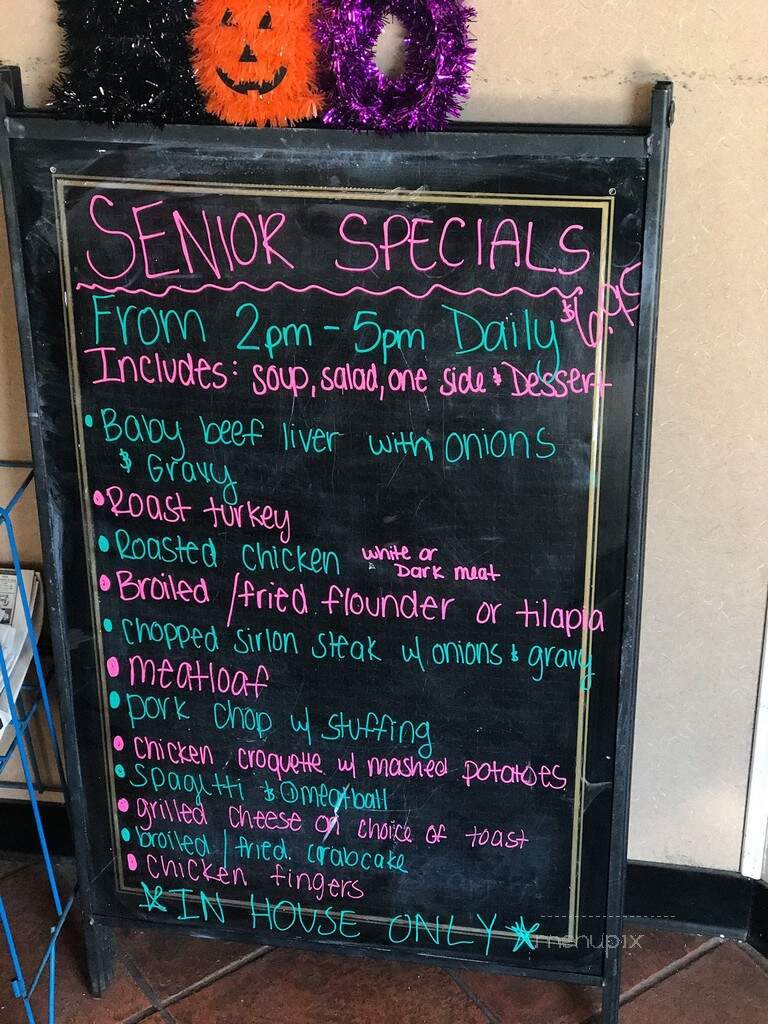 SENIOR SPECIALS
From 2pm - 5pm Daily $6.95
Includes: soup, salad, one side & Dessert
• Baby beef liver with onions
& Gravy
• Roast turkey
• Roasted chicken white or
Dark meat
• Broiled /fried flounder or tilapia
• chopped sirlon steak w/ onions & gravy
• meatloaf
• pork chop w/ stuffing
• chicken croquette w/ mashed potatoes
• spagetti & ① meatball
• grilled cheese on choice of toast
• broiled / fried crabcake
• chicken fingers
*IN HOUSE ONLY*
menupix